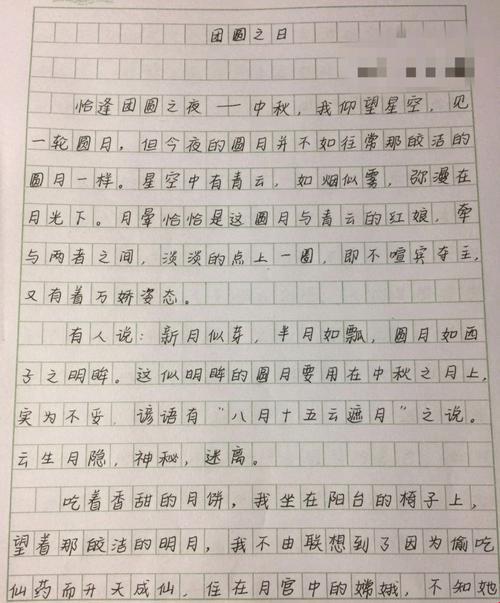 团圆之日
恰逢团圆之夜——中秋，我仰望星空，见
一轮圆月，但今夜的圆月并不如往常那皎洁的
圆月一样。星空中有青云，如烟似雾，弥漫在
月光下。月晕恰恰是这圆月与青云的红娘，牵
与两者之间，淡淡的点上一圈，即不喧宾夺主，
又有着万娇姿态。
有人说：新月似芽，半月如瓢，圆月如西
子之明眸。这似明眸的圆月要用在中秋之月上，
实为不妥，谚语有“八月十五云遮月”之说。
云生月隐，神秘，迷离。
吃着香甜的月饼，我坐在阳台的椅子上，
望着那皎洁的明月，我不由联想到了因为偷吃
仙药而升天成仙，住在月宫中的嫦娥，不知她